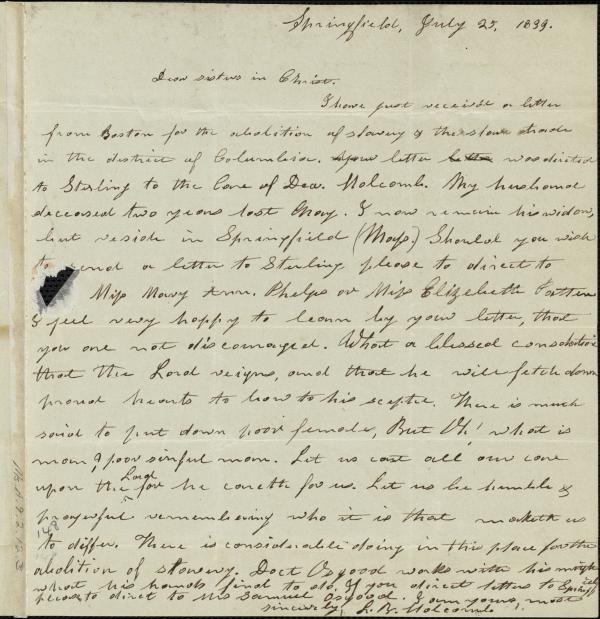 Springfield, July 25, 1839.
Dear sisters in Christ.
I have just receive a letter
from Boston for the abolition of slavery & the slave trade
in the district of Columbia. Your letter was directed
to Sterling to the Care of Dea. Holcomb. My husband
deceased two years last May. I now remain his widow,
but reside in Springfield (Mass.) Should you wish
to send a letter to Sterling please to direct to
Miss Mary Ann. Phelps or Miss Elizebeth
I feel very happy to learn by your letter, that
you are not discouraged. What a blessed consolation
that the Lord reigns, and that he will fetch down
proud hearts to bow to his scepter. There is much
said to put down poor female, But Oh! what is
man, poor sinful man. Let us cast all our care
upon the Lord for he careth for us. Let us be humble &
prayerful remembering who it is that maketh us
to differ. There is considerable doing in this place for the
abolition of slavery. Doct Osgood works with his might
what his hands find to do. If you direct letters to Springfield
please to direct to Mrs Samuel Osgood. I am yours, most
sincerely, L. B. Holcomb.
148